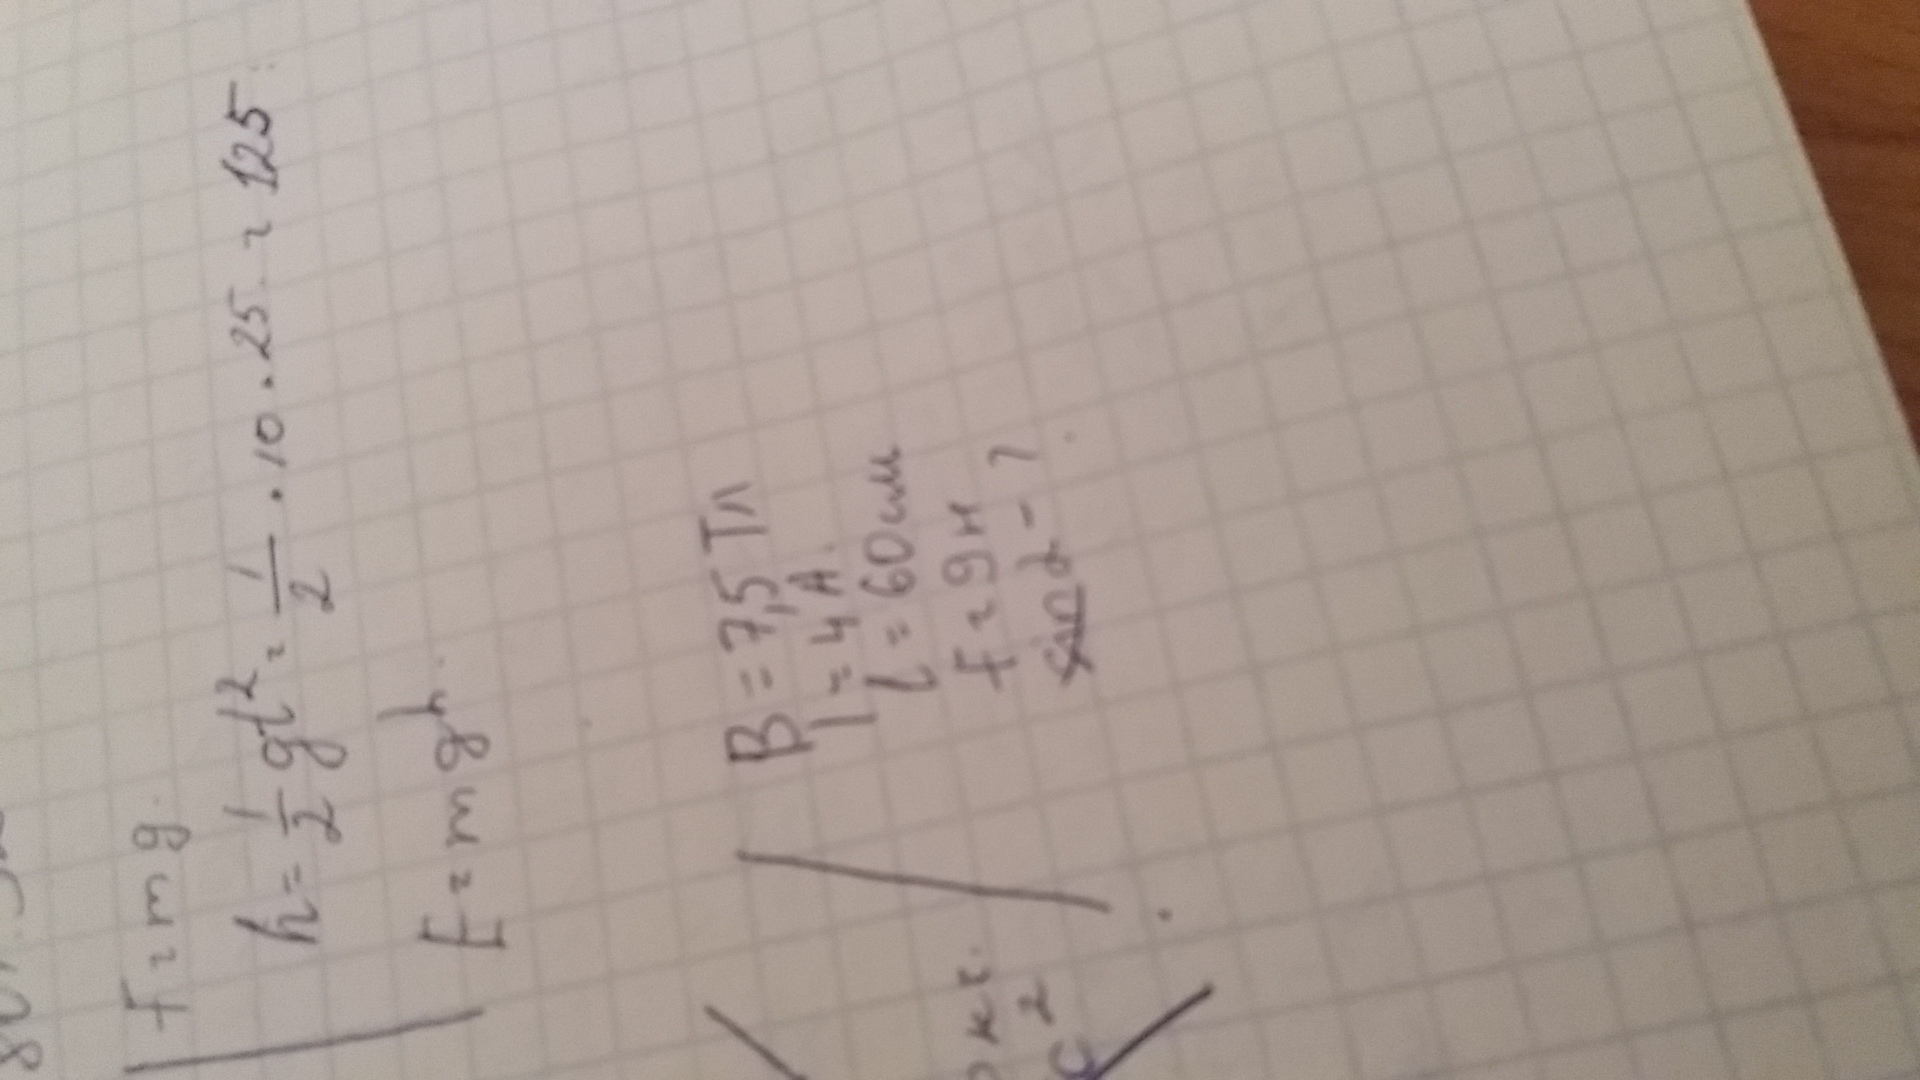 F = mg.
h = 1/2 gt² = 1/2 · 10 · 25 = 125
E = mgh.
B = 7,5 Тл
I = 4 А.
l = 60 см
F = 9 н
sin α - ?